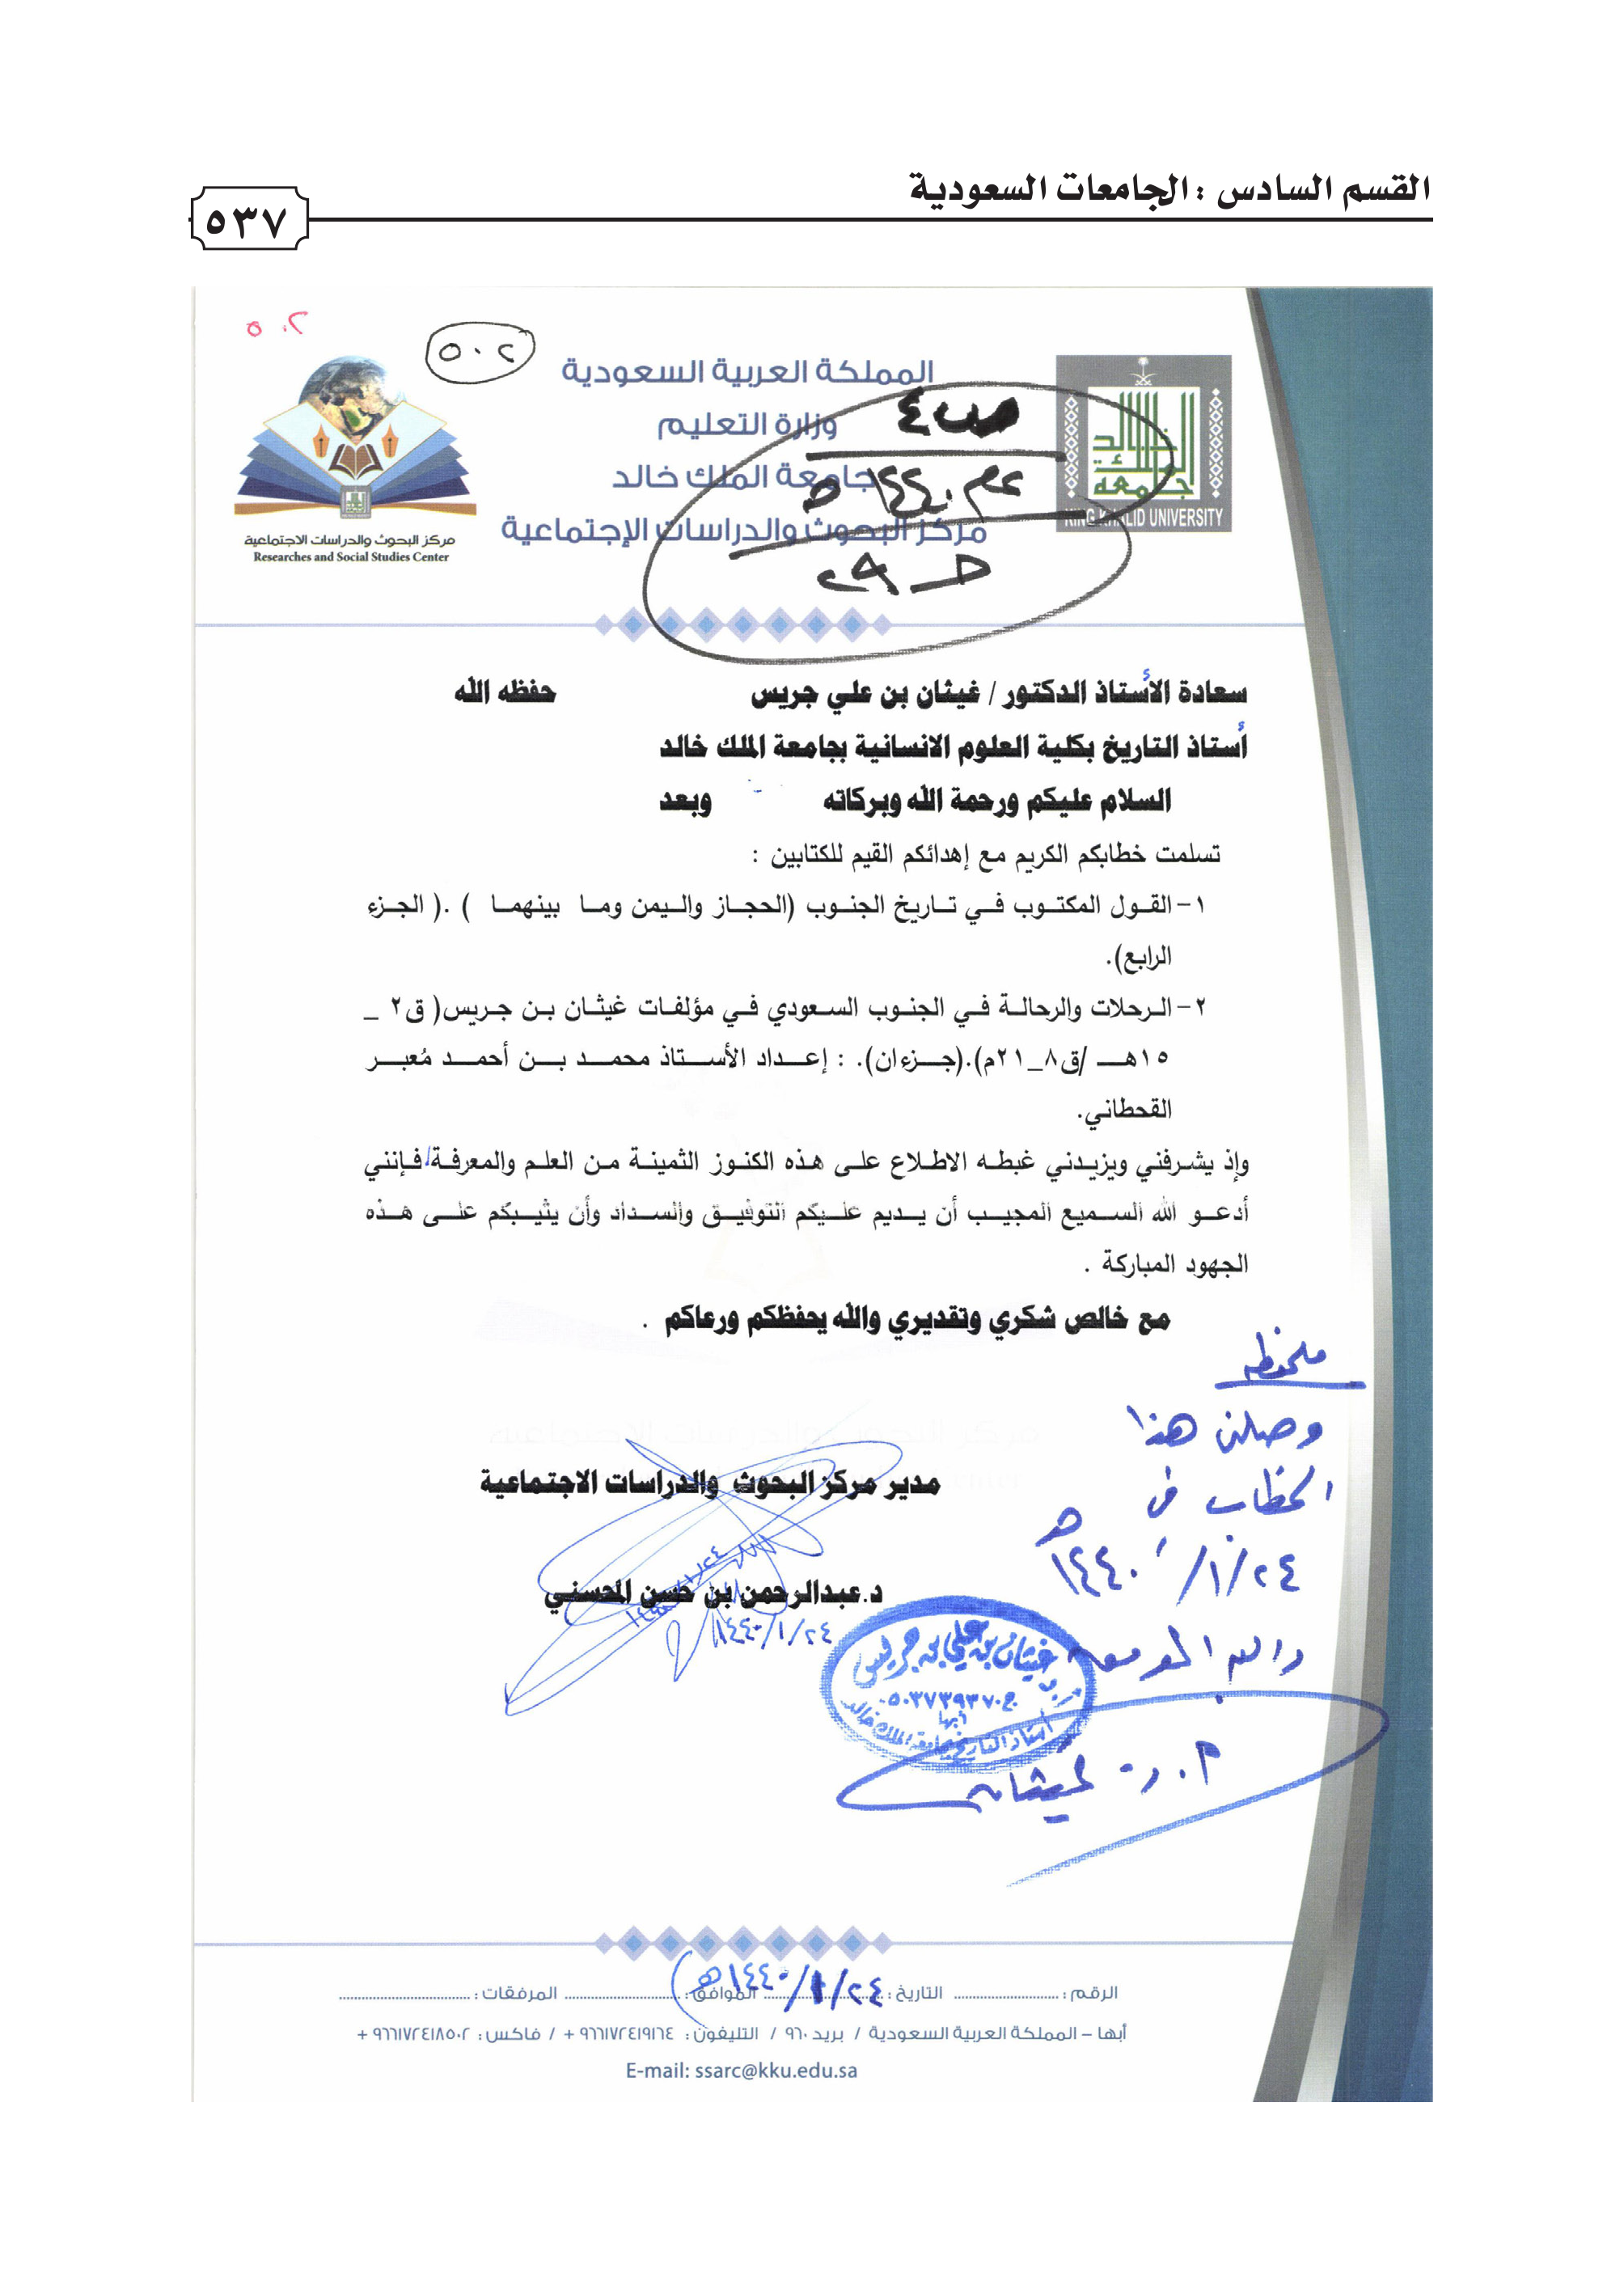 القسم السادس : الجامعات السعودية
٥٣٧
٥٠٢
٥٠٢
المملكة العربية السعودية
وزارة التعليم
جامعة الملك خالد
مركز البحوث والدراسات الإجتماعية
مركز البحوث والدراسات الاجتماعية
Researches and Social Studies Center
جامعة الملك خالد
KING KHALID UNIVERSITY
ص٤
عام ١٤٤٠هـ
حـ ٢٩
سعادة الأستاذ الدكتور / غيثان بن علي جريس حفظه الله
أستاذ التاريخ بكلية العلوم الانسانية بجامعة الملك خالد
السلام عليكم ورحمة الله وبركاته وبعد
تسلمت خطابكم الكريم مع إهدائكم القيم للكتابين :
١- القول المكتوب في تاريخ الجنوب (الحجاز واليمن وما بينهما ) .( الجزء
الرابع).
٢- الرحلات والرحالة في الجنوب السعودي في مؤلفات غيثان بن جريس( ق٢ _
١٥هـ /ق٨_٢١م).(جزءان). : إعداد الأستاذ محمد بن أحمد مُعبر
القحطاني.
وإذ يشرفني ويزيدني غبطه الاطلاع على هذه الكنوز الثمينة من العلم والمعرفة، فإنني
أدعو الله السميع المجيب أن يديم عليكم التوفيق والسداد وأن يثيبكم على هذه
الجهود المباركة .
مع خالص شكري وتقديري والله يحفظكم ورعاكم .
ملحوظه
وصلني هذا
الخطاب في
٢٤/ ١/ ١٤٤٠هـ
والله الموفق
مدير مركز البحوث والدراسات الاجتماعية
د.عبدالرحمن بن حسن المحسني
٢٤/ ١/ ١٤٤٠
غيثان بن علي بن جريس
ج.٠٥٠٣٧٣٩٣٧٠
أبها
أستاذ التاريخ بجامعة الملك خالد
أ.د. غيثان
الرقم : التاريخ : ٢٤/ ١/ ١٤٤٠هـ الموافق : المرفقات :
أبها – المملكة العربية السعودية / بريد ٩٦٠ / التليفون : ٩٦٦١٧٢٤١٩١٦٤ + / فاكس : ٩٦٦١٧٢٤١٨٥٠٢ +
E-mail: ssarc@kku.edu.sa